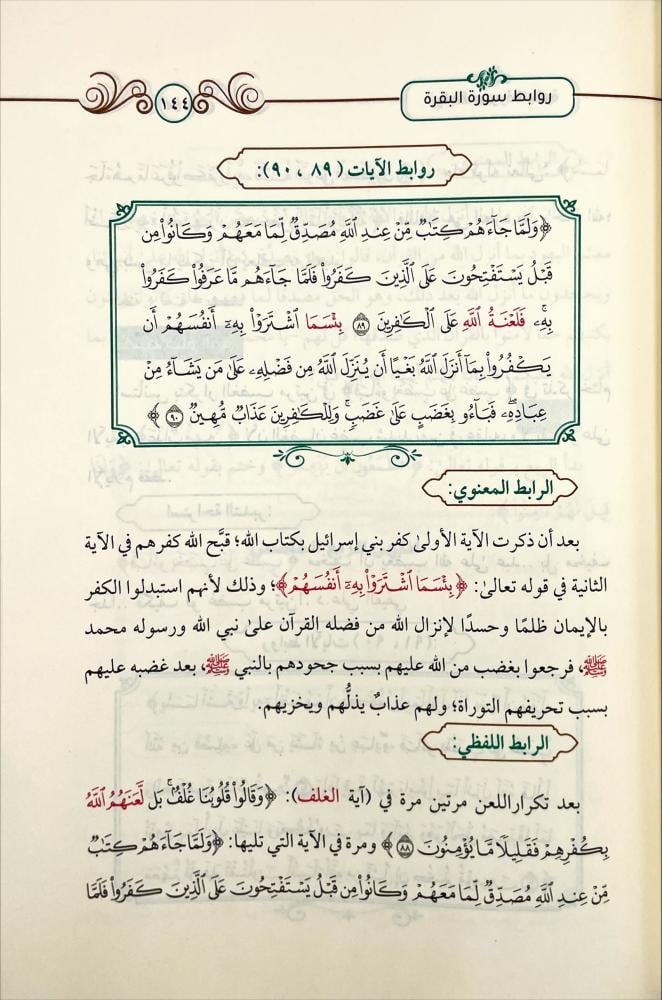 روابط سورة البقرة
١٤٤
روابط الآيات (٨٩ ، ٩٠):
﴿وَلَمَّا جَآءَهُمْ كِتَٰبٌ مِّنْ عِندِ ٱللَّهِ مُصَدِّقٌ لِّمَا مَعَهُمْ وَكَانُوا۟ مِن
قَبْلُ يَسْتَفْتِحُونَ عَلَى ٱلَّذِينَ كَفَرُوا۟ فَلَمَّا جَآءَهُم مَّا عَرَفُوا۟ كَفَرُوا۟
بِهِۦ فَلَعْنَةُ ٱللَّهِ عَلَى ٱلْكَٰفِرِينَ ٨٩ بِئْسَمَا ٱشْتَرَوْا۟ بِهِۦٓ أَنفُسَهُمْ أَن
يَكْفُرُوا۟ بِمَآ أَنزَلَ ٱللَّهُ بَغْيًا أَن يُنَزِّلَ ٱللَّهُ مِن فَضْلِهِۦ عَلَىٰ مَن يَشَآءُ مِنْ
عِبَادِهِۦ فَبَآءُو بِغَضَبٍ عَلَىٰ غَضَبٍ وَلِلْكَٰفِرِينَ عَذَابٌ مُّهِينٌ ٩٠﴾
الرابط المعنوي:
بعد أن ذكرت الآية الأولىٰ كفر بني إسرائيل بكتاب الله؛ قبَّح الله كفرهم في الآية
الثانية في قوله تعالىٰ: ﴿بِئْسَمَا ٱشْتَرَوْا۟ بِهِۦٓ أَنفُسَهُمْ﴾؛ وذلك لأنهم استبدلوا الكفر
بالإيمان ظلمًا وحسدًا لإنزال الله من فضله القرآن علىٰ نبي الله ورسوله محمد
ﷺ، فرجعوا بغضب من الله عليهم بسبب جحودهم بالنبي ﷺ، بعد غضبه عليهم
بسبب تحريفهم التوراة؛ ولهم عذابٌ يذلُّهم ويخزيهم.
الرابط اللفظي:
بعد تكرار اللعن مرتين مرة في (آية الغلف): ﴿وَقَالُوا۟ قُلُوبُنَا غُلْفٌۢ بَل لَّعَنَهُمُ ٱللَّهُ
بِكُفْرِهِمْ فَقَلِيلًا مَّا يُؤْمِنُونَ ٨٨﴾ ومرة في الآية التي تليها: ﴿وَلَمَّا جَآءَهُمْ كِتَٰبٌ
مِّنْ عِندِ ٱللَّهِ مُصَدِّقٌ لِّمَا مَعَهُمْ وَكَانُوا۟ مِن قَبْلُ يَسْتَفْتِحُونَ عَلَى ٱلَّذِينَ كَفَرُوا۟ فَلَمَّا